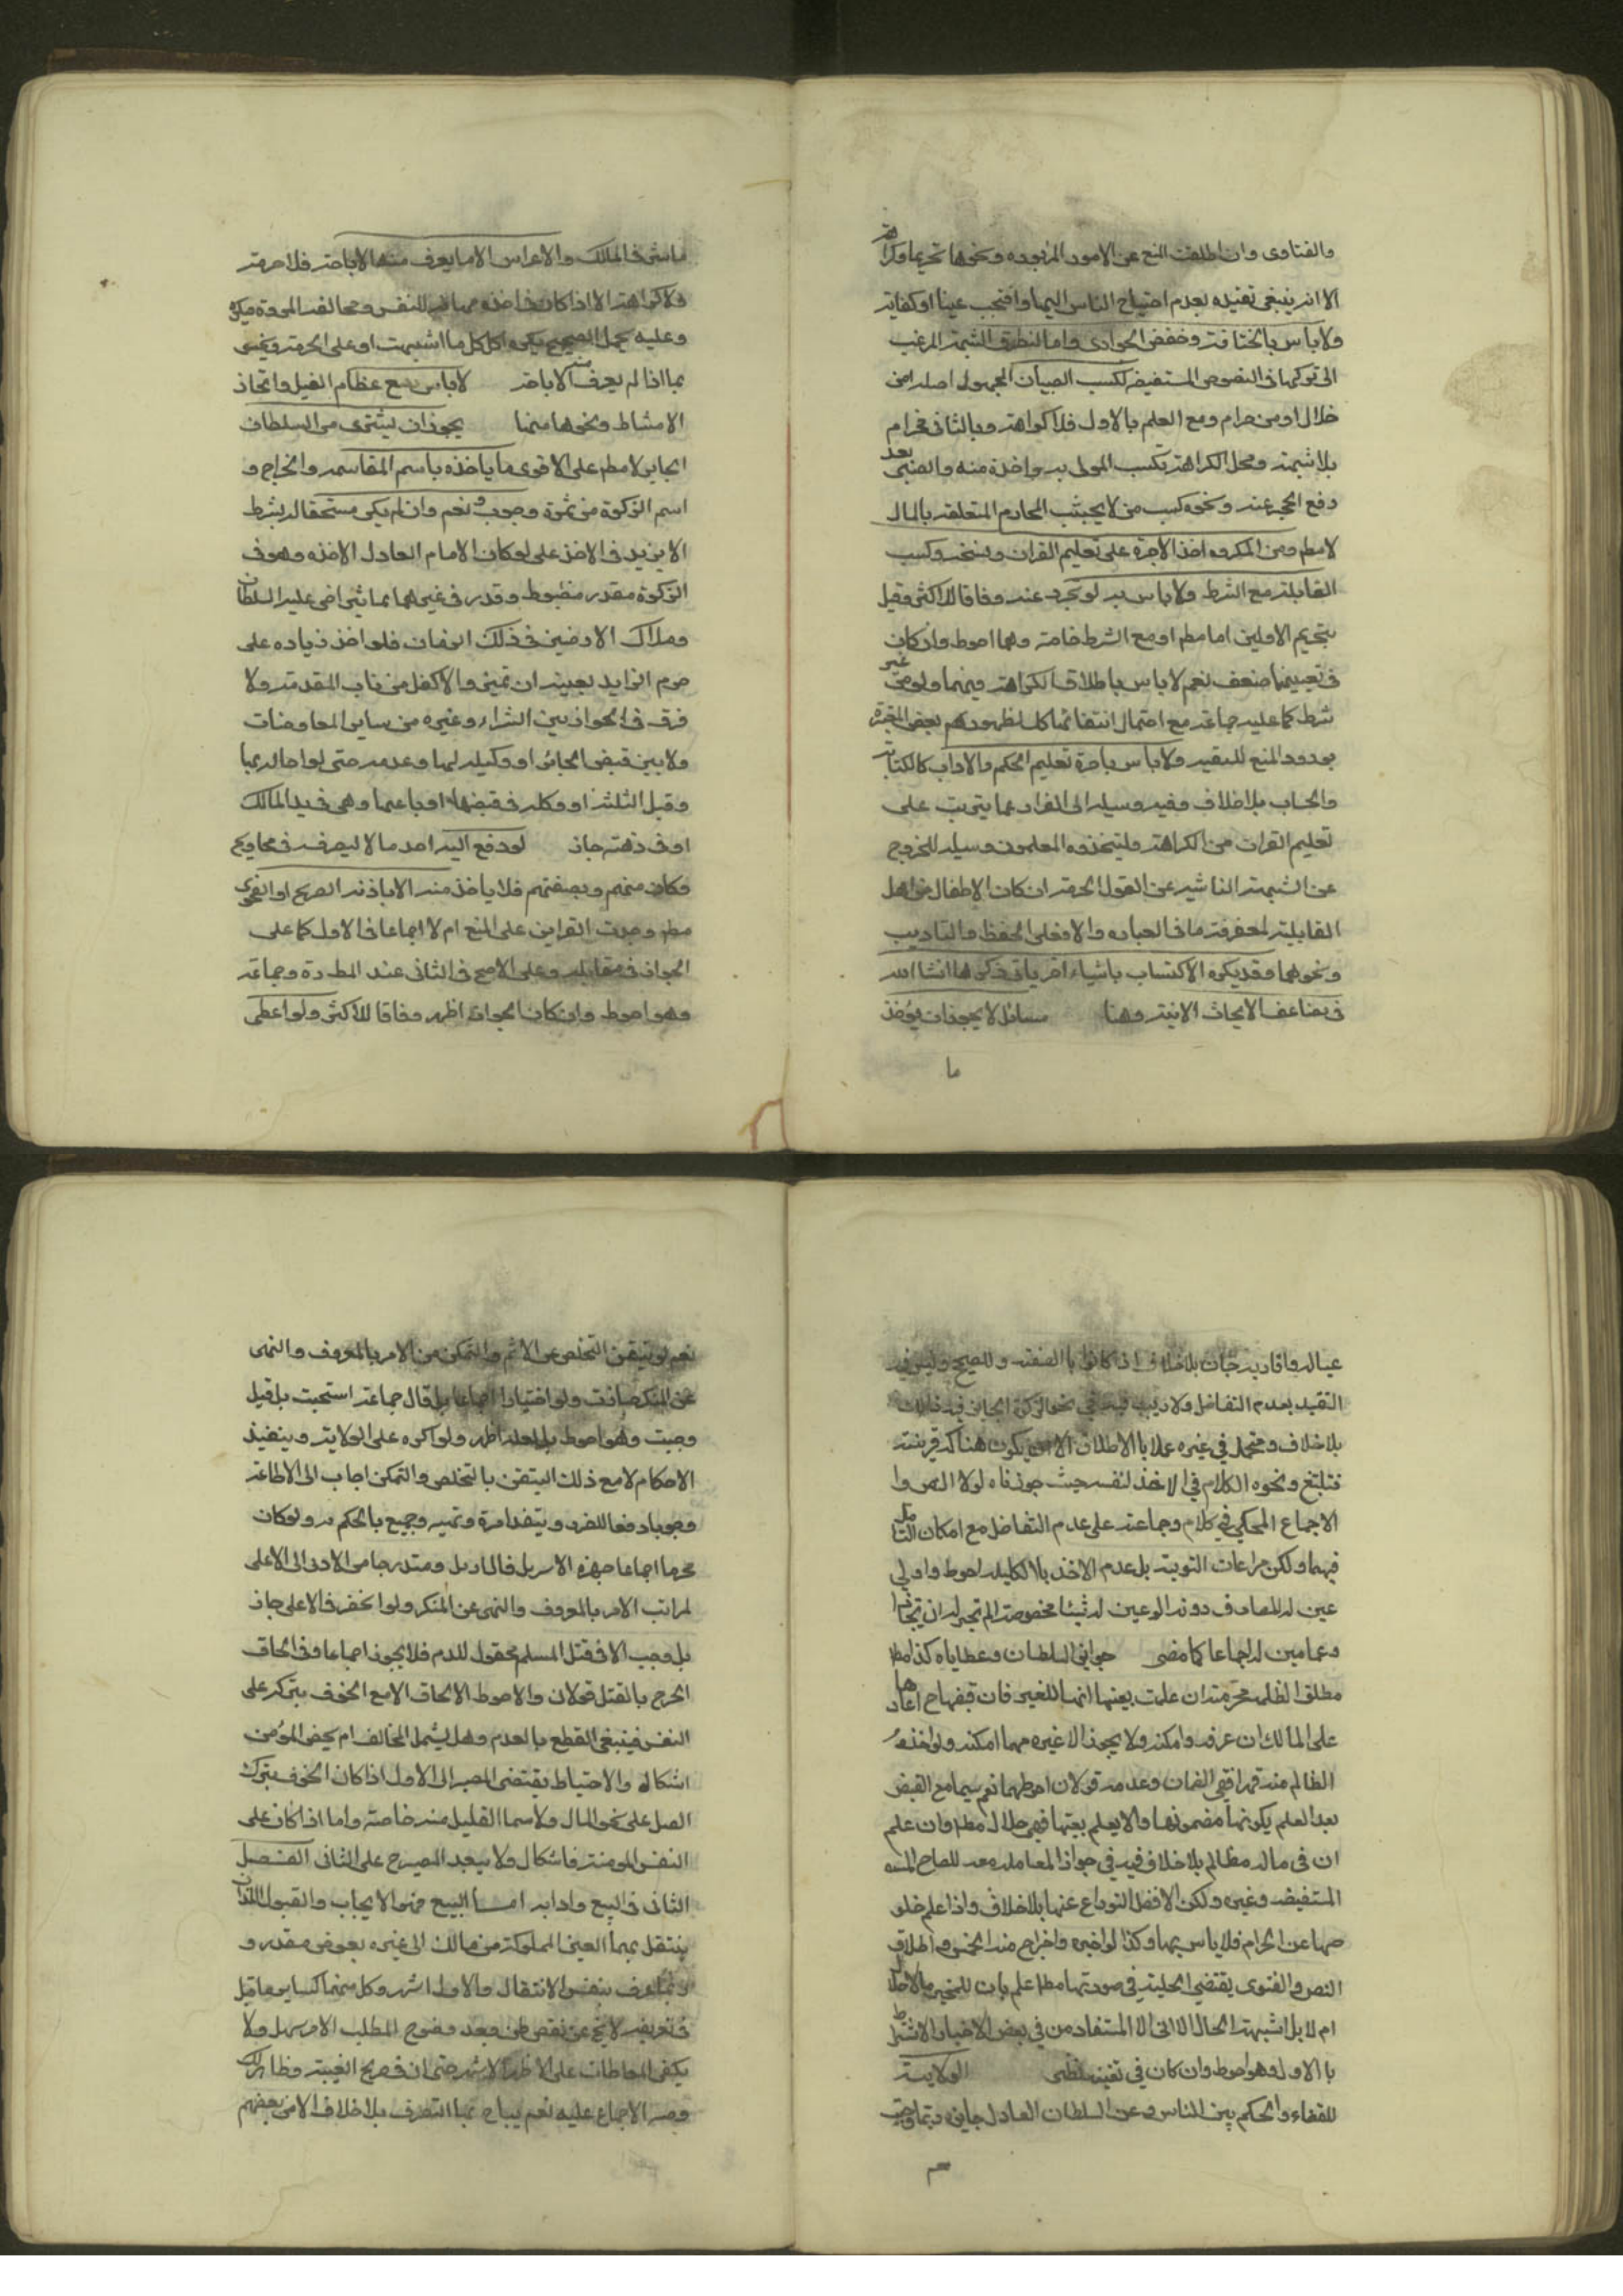 والفتاوى وان اطلقت المنع عن الامور المزبوره ونحوها تحريما وكراهة
الا انه ينبغى تقييده بعدم احتياج الناس اليها والا فتجب عينا او كفاية
ولا باس بالختانة وخفض الجوارى واما لتطرق الشبهة المرغب
الى تركها فى النصوص المستفيضة ككسب الصبيان المجهول اصله من
حلال او من حرام ومع العلم بالاول فلا كراهة وبالثانى فحرام
بلا شبهة ومحل الكراهة تكسب المولى به واخذه منه والصبى بعد
دفع الحجر عنه ونحوه كسب من لا يجتنب المحارم المتعلقة بالمال
لا مطم ومن المكروه اخذ الاجرة على تعليم القران ونسخه وكسب
القابلة مع الشرط ولا باس به لو تجرد عنه وفاقا للاكثر وقيل
بتحريم الاولين اما مطم او مع الشرط خاصة وهما احوط وان كان
فى تعيينهما ضعف نعم لا باس باطلاق الكراهة فيهما ولو من غير
شرط كما عليه جماعة مع احتمال انتفائها كل لظهور بعض المعتبرة
بورود المنع للتقية ولا باس باجرة تعليم الحكم والاداب كالكتابة
والحساب بلا خلاف وفيه وسيلة الى الفرار عما يترتب على
تعليم القران من الكراهة وليتخذوه المعلمون وسيلة للخروج
عن الشبهة الناشية عن القول بالحرمة ان كان الاطفال من اهل
القابلية لمعرفة ما فى العبارة والا فعلى الحفظ والتاديب
ونحوهما وقد يكره الاكتساب باشياء اخر ياتى ذكرها انشا الله
فى تضاعيف الابحاث الاتية وهنا مسائل لا يجوز ان يؤخذ
ما
ما ينثر فى الملاك والاعراس الا ما يعرف منها الاباحة فلا حرمة
ولا كراهة الا اذا كان فى اخذه مهانة للنفس ومخالفة المروة فيكره
وعليه يحمل الصحيح يكره اكل كل ما انتهبت او على الحرمة ويختص
بما اذا لم يعرف منه الاباحة لا باس ببيع عظام الفيل واتخاذ
الامشاط ونحوها منها يجوز ان يشترى من السلطان
الجابر لا مطم على الاقوى ما ياخذه باسم المقاسمة والخراج و
اسم الزكوة من ثمرة وحبوب ونعم وان لم يكن مستحقا له بشرط
الا يزيد فى الاخذ على لو كان الامام العادل لاخذه وهو فى
الزكوة مقدر مضبوط وقدر فى غيرهما بما تراضى عليه السلطان
وملاك الارضين فى ذلك الزمان فلو اخذ زياده على
حرم الزايد بعينه ان تميز والا فكل من باب المقدمة ولا
فرق فى الجواز بين الشراء وغيره من ساير المعاوضات
ولا بين قبض الجائر او وكيله لها وعدمه حتى لو احاله بها
وقبل الثلثة او وكله فى قبضها او باعها وهى فى يد المالك
او فى ذمته جاز لو دفع اليه احد مالا ليصرفه فى محاويج
وكان منهم وبصفتهم فلا ياخذ منه الا باذنه الصريح او الفحوى
مطم وجدت القراين على المنع ام لا اجماعا فى الاول كما على
الجواز فى مقابله وعلى الاصح فى الثانى عند وجماعة
وهو احوط وان كان الجواز اظهر وفاقا للاكثر ولو اعطى
عياله واقاربه جاز بلا خلاف اذا كانوا بالصفة وللصحيح وليس فيه
التقييد بعدم التفاضل ولا ريب فيه فى نحو الزكوة الجايز فيه ذلك
بلا خلاف ومحتمل فى غيره عملا بالاطلاق الا ان يكون هناك قرينة
فتلتغ ونحوه الكلام فى الاخذ لنفسه حيث جوزناه لولا النص وا
الاجماع المحكى فى كلام وجماعة على عدم التفاضل مع امكان التامل
فيهما ولكن مراعات التوية بل عدم الاخذ بالكلية احوط واولى
عين له المصارف دونه او عين له شيئا مخصوصة لم تجز له ان يتجاوزا
وعما عين له اجماعا كما مضى جوايز السلطان وعطاياه كذا مط
مطلق الظلمة محرمة ان علمت بعينها انها للغير فان قبضها اعادها
على المالك ان عرفه وامكنه ولا يجوز لا غيره مهما امكنه ولو اخذه
الظالم منه قهرا فهى الضمان وعدمه قولان احوطهما نعم سيما مع القبض
بعد العلم بكونها مضمونها والا يعلم بعينها فهى حلال مط وان علم
ان فى ماله مظالم بلا خلاف فيه فى جواز المعاملة معه للصحاح
المستفيضة وغيره ولكن الافضل التورع عنها بلا خلاف واذا علم خلو
صها عن الحرام فلا باس بها وكذا لو اخبره واخراج منه الخمس واطلاق
النص والفتوى يقتضى الحلية فى صورتها مط علم بان للمجيز مالا حلال
ام لا بل اشتبهت الحال الا ان المستفاد من فى بعض الاخبار الاشتراط
بالاول وهو احوط وان كان فى تعينه نظر الولاية
للقضاء والحكم بين الناس وعن السلطان العادل جايزه وربما وجبت
نعم لو تيقن التخلص عن الاثم والتمكن من الامر بالمعروف والنهى
عن المنكر جازت ولو اختيارا اجماعا بل قال جماعة استحبت بل قيل
وجبت وهو احوط بل لعله اظهر ولو اكره على الولاية وينفيذ
الاحكام لا مع ذلك التيقن بالتخلص والتمكن اجاب الى الاطاعة
وجوبا دفعا للضرر ويتفذ امره وتميه وجميع بالحكم به ولو كان
محرما اجماعا جهزه الاسر بل فالمادبل ومتدرجا من الادنى الى الاعلى
لمراتب الامر بالمعروف والنهى عن المنكر ولو انحضر فالاعلى جاز
بل وجب الا فى قتل المسلم محقول للدم فلا يجوز اجماعا وفى الحاق
الجرح بالقتل قولان والاحوط الالحاق الا مع الخوف بتركه على
النفس فينبغى القطع بالعدم وهل يشمل المخالف ام يخص المؤمن
اشكال والاحتياط يقتضى المصير الى الاول اذا كان الخوف بترك
العمل على نحو المال ولا سما القليل منه خاصة واما اذا كان على
النفس المومنة فاشكال ولا يبعد المصيرح على الثانى الفصل
الثانى فى البيع وادابه اما البيع فهو الايجاب والقبول اللذان
ينتقل بهما العين المملوكة من مالك الى غيره بعوض مقدر و
وربما عرف بنفس الانتقال والاول اشهر وكل منهما كساير ما قيل
فى تعريفه لا يخ عن نقص ظن وبعد وضوح المطلب الامر سهل ولا
يكفى المعاطات على الاظهر الاشهر حتى ان فى صريح الغيبة وظاهر لك
وصر الاجماع عليه نعم يباح بها التصرف بلا خلاف الا من بعضهم